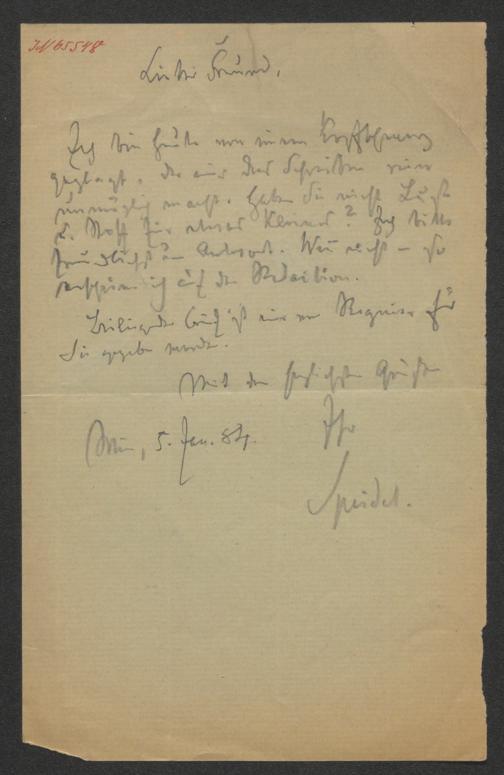 IN 65548
Lieber Freund,
Ich bin heute von einem Kopfschmerz
geplagt, der mir das Schreiben rein
unmöglich macht. Haben Sie nicht Lust
u. Stoff für etwas Kleines? Ich bitte
freundlichst um Antwort. Wenn nicht – so
erscheine ich auf der Redaction.
Beiliegender Brief ist mir von für
Sie gegeben worden.
Mit den herzlichsten Grüßen
Ihr
Wien, 5. Jan. 84.
Speidel.